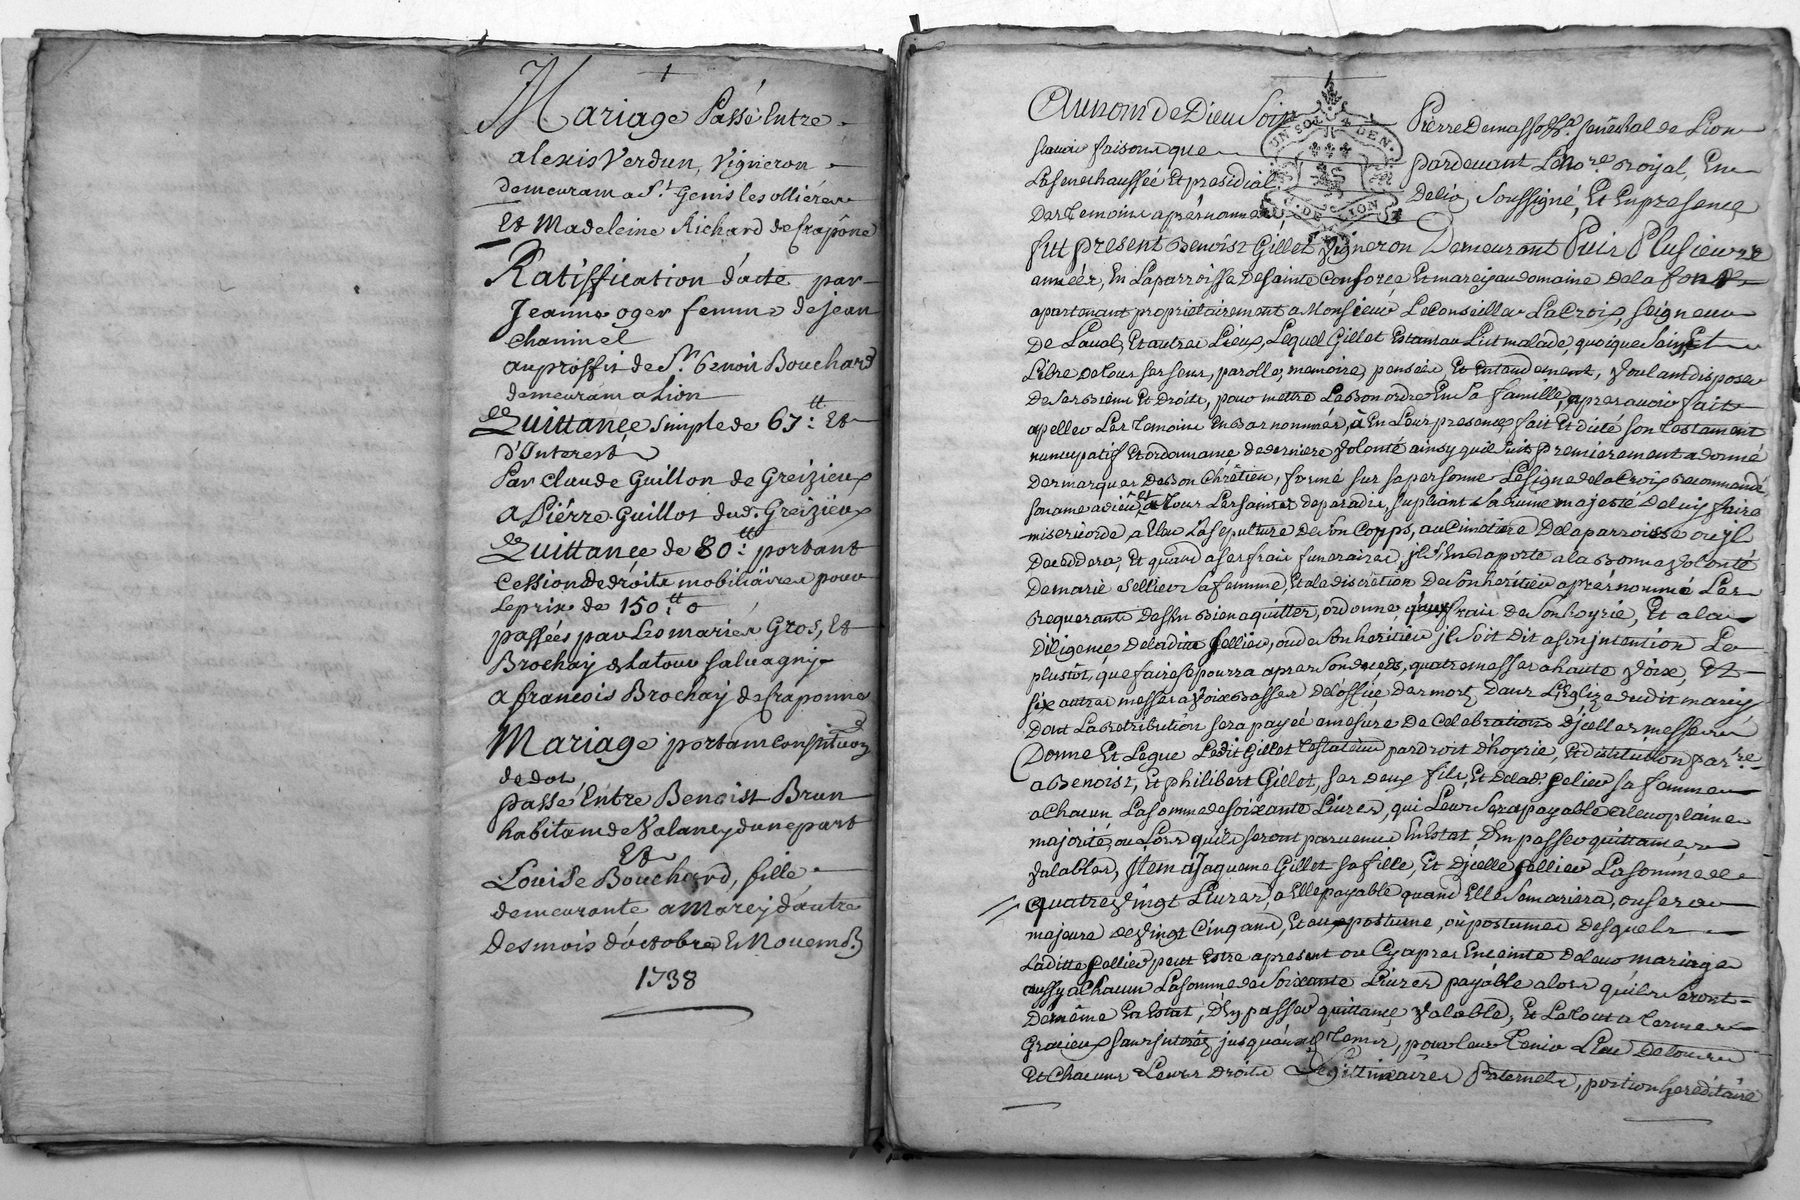 Mariage Passé Entre
alexis Verdun, Vigneron
demeurant a St. Genis les ollières
Et Madeleine Richard de Craponne
Ratiffication d'acte par
Jeanne oger femme de jean
Chaninel
au proffit de Sr. benoit Bouchard
demeurant a Lion
Quittance simple de 67 tt Et
d'Interest
Par Claude Guillon de Greizieux
a Piérre Guillot dud. Greizieux
Quittance de 80 tt portant
Cession de droits mobiliaires pour
Le prix de 150 tt
passées par Les mariés Gros, Et
Brochay de Latour salvagny
a francois Brochay de Craponne
Mariage portant constitution
de dot
passé Entre Benoist Brun
habitant de Valaney d'une part
Et
Louise Bouchard, fille
demeurante a Marcy d'autre
Des mois d'octobre Et Novemb.
1738
Au nom de Dieu Soit Pierre Demasso Sénéchal de Lion
scavoir faisons que pardevant Le No.re Roijal, En
La senechaussée Et presidial De Lion Soussigné, Et En presence
Des Temoins aprés nommés
fut present Benoist Gillet Vigneron Demeurant Puis Plusieurs
années, En La parroisse De Sainte Consorce Et marcy au domaine De la font
apartenant proprietairement a Monsieur Le Conseiller La Croix, Seigneur
De Laval, Et autres Lieux, Lequel Gillet Estant au Lict malade, quoique Sain, Et
Libre De tous ses sens, parolle, memoire, pensée, Et Entendement, Voulant disposer
De Ses Biens Et Droits, pour mettre Le Bon ordre En Sa famille, apres avoir fait
apeller Les Temoins En Bas nommés, a En Leur presence fait Et dicté son Testament
nuncupatif Et ordonnance de derniere Volonté ainsy qu'il suit Premierement a donné
Des marques De Bon Chrêtien, formé sur sa personne Le Signe de la Croix Recommandé
son ame a dieu Et a Tous Les saints de paradis, supliant sa divine majesté De luy faire
misericorde, a Elu La Sepulture de son Corps, au Cimetiere De la parroisse ou il
Decedera, Et quand a ses frais funeraires, il s'En raporte a la Bonne Volonté
De marie Pellier sa femme, Et a la discretion De son heritier aprés nommé Les
Requerants de s'En Bien aquitter, ordonne qu'aux frais de Son hoyrie, Et a la
Diligence de ladite Pellier, ou de Son heritier il soit dit a son jntention Le
plustôt que faire se pourra apres Son decés, quatre messes a haute Voix, Et
six autres messes a Voix Basses de l'office des morts dans L'Eglize dudit marcy
Dont La Retribution sera payée a mesure De Celebration d'jcelles messes
Donne Et Legue Ledit Gillet Testateur par droit d'hoyrie, Et d'institution par.re
a Benoist, Et philibert Gillet, ses deux fils, Et de lad. Pelier sa femme
a Chacun La somme de soixante Livres, qui Leur Sera payable a Leur plaine
majorité, ou Lors qu'ils seront parvenus En Estat d'En passer quittance
Valables, Jtem a Jaqueme Gillet sa fille, Et d'jcelle Pellier La somme de
quatre Vingt Livres, a Elle payable quand Elle Se mariera, ou sera
majeure de Vingt Cinq ans, Et au postume, ou postumes Desquels
Laditte Pellier peut Estre apresent ou Cyapres Enceinte de leur mariage
aussy a Chacun La somme de Soixante Livres payable alors qu'ils Seront
De même En Estat, d'En passer quittance Valable, Et Le tout a Termes
Gracieux sans jnterêts jusqu'auxd. Termes, pour leur Tenir Lieu De tous
Et Chacuns Leurs Droits Legitimaires Paternels, portion hereditaire